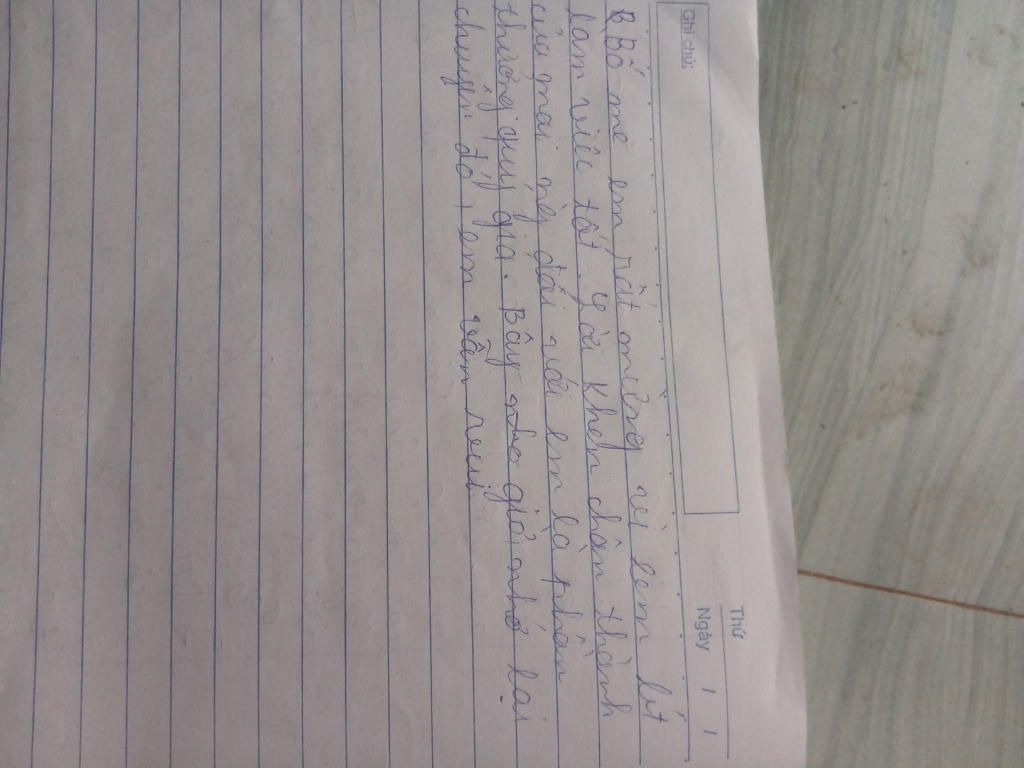 Thứ
Ngày / /
Ghi chú:
B Bố mẹ em rất mừng vì em biết
làm việc tốt. Lời khen chân thành
của mọi người đối với em là phần
thưởng quý giá. Bây giờ nhớ lại
chuyện đó, em vẫn vui